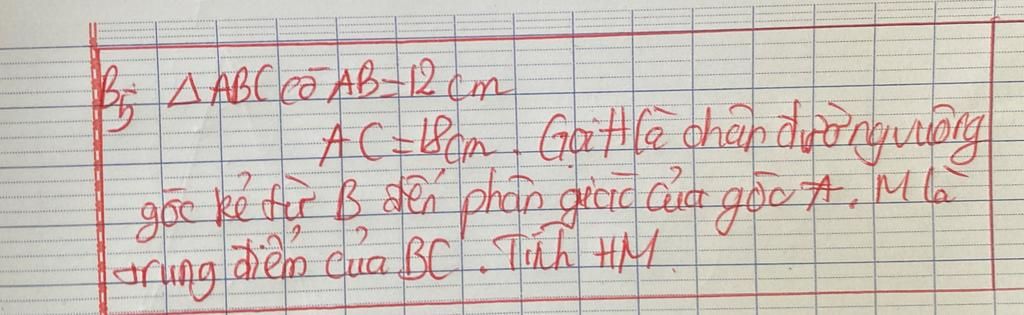 B5: △ABC có AB=12 cm
AC=18cm. Gọi H là chân đường vuông
góc kẻ từ B đến phân giác của góc A. M là
trung điểm của BC. Tính HM.